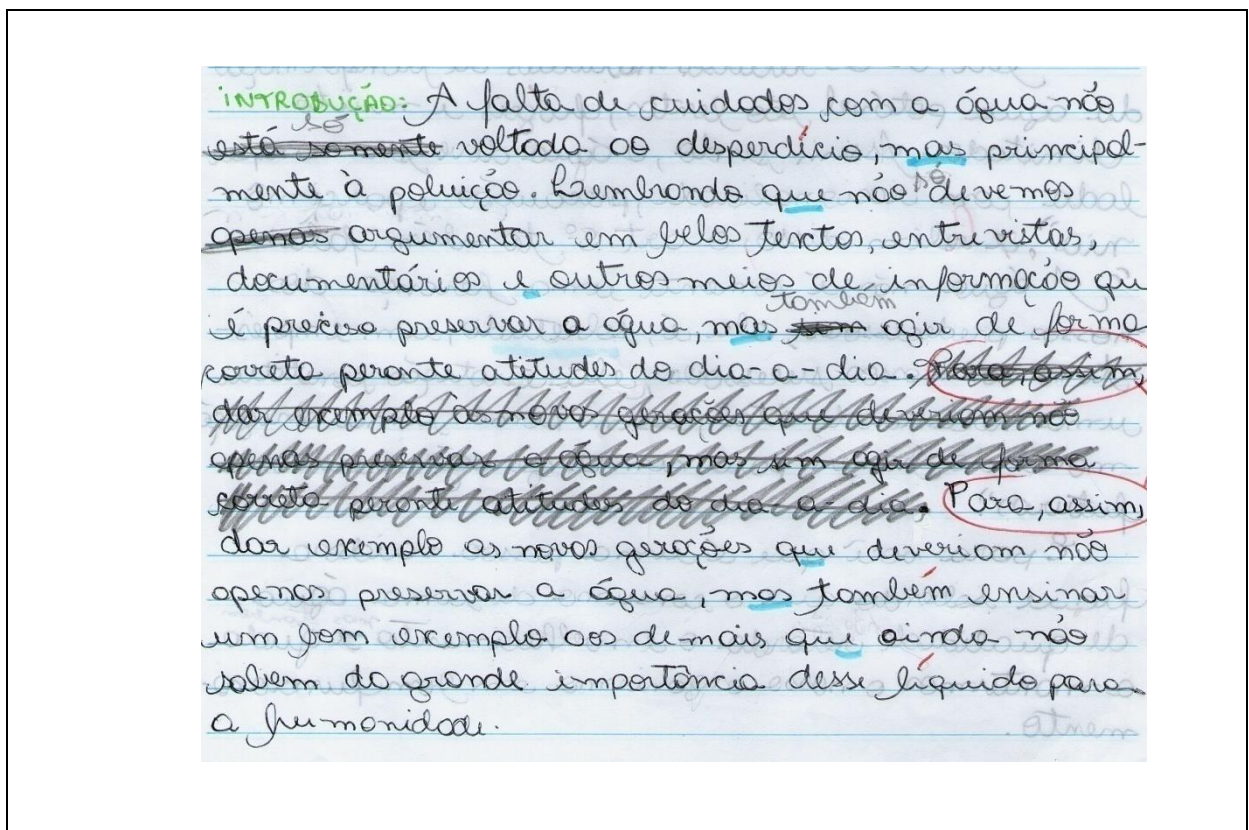 INTRODUÇÃO: A falta de cuidados com a água não
só
está somente voltada ao desperdício, mas principal-
mente à poluição. Lembrando que não só devemos
apenas argumentar em belos textos, entrevistas,
documentários e outros meios de informação qu
também
é preciso preservar a água, mas sim agir de forma
correta perante atitudes do dia-a-dia. Para, assim,
dar exemplo as novas gerações que deveriam não
apenas preservar a água, mas sim agir de forma
correta perante atitudes do dia-a-dia. Para, assim,
dar exemplo as novas gerações que deveriam não
apenas preservar a água, mas também ensinar
um bom exemplo aos demais que ainda não
sabem da grande importância desse líquido para
a humanidade.